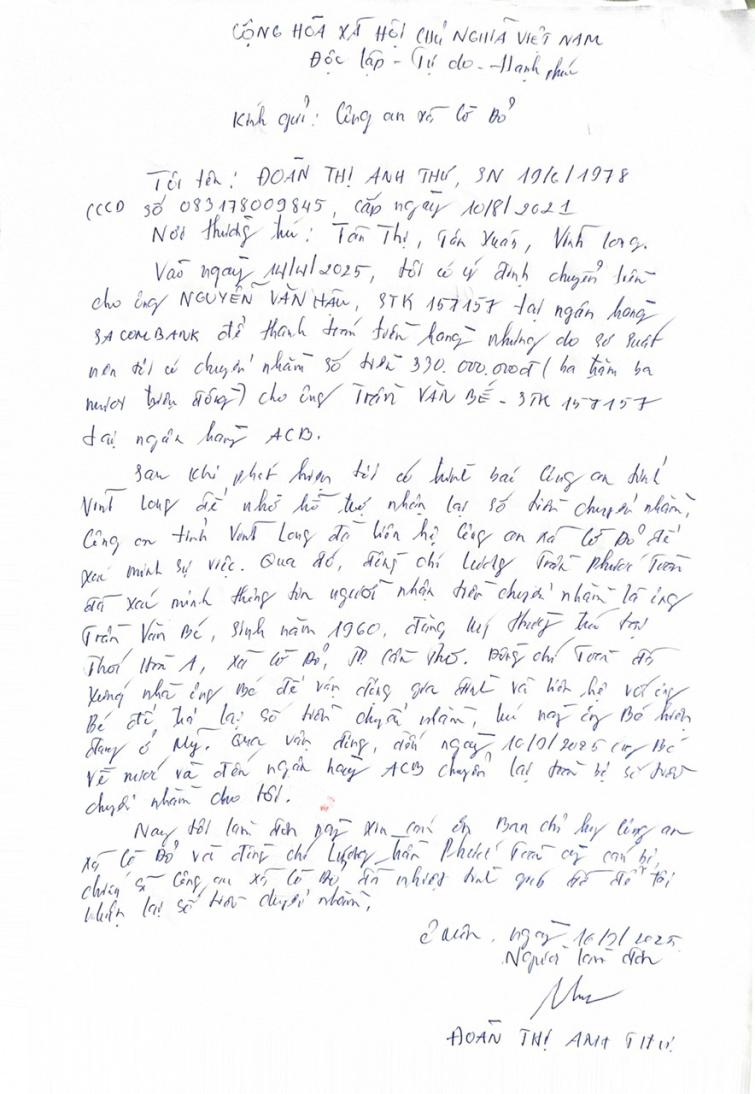 CỘNG HÒA XÃ HỘI CHỦ NGHĨA VIỆT NAM
Độc lập - Tự do - Hạnh phúc
Kính gửi: Công an xã Cờ Đỏ
Tôi tên: ĐOÀN THỊ ANH THƯ, SN 19/6/1978
CCCD số 083178009845, cấp ngày 10/8/2021
Nơi thường trú: Tân Thị, Tân Xuân, Vĩnh Long.
Vào ngày 14/4/2025, tôi có ý định chuyển tiền
cho ông NGUYỄN VĂN HẬU, STK 157157 tại ngân hàng
SACOMBANK để thanh toán tiền hàng nhưng do sơ suất
nên tôi có chuyển nhầm số tiền 330.000.000đ (ba trăm ba
mươi triệu đồng) cho ông TRẦN VĂN BÉ - STK 157157
tại ngân hàng ACB.
Sau khi phát hiện tôi có trình báo Công an tỉnh
Vĩnh Long để nhờ hỗ trợ nhận lại số tiền chuyển nhầm,
Công an tỉnh Vĩnh Long đã liên hệ Công an xã Cờ Đỏ để
xác minh sự việc. Qua đó, đồng chí Lương Trần Phước Toàn
đã xác minh thông tin người nhận tiền chuyển nhầm là ông
Trần Văn Bé, sinh năm 1960, đăng ký thường trú tại
Thới Hòa A, xã Cờ Đỏ, TP. Cần Thơ. Đồng chí Toàn đã
xuống nhà ông Bé để vận động gia đình và liên hệ với ông
Bé để trả lại số tiền chuyển nhầm, lúc này ông Bé hiện
đang ở Mỹ. Qua vận động, đến ngày 16/9/2025 ông Bé
về nước và đến ngân hàng ACB chuyển lại toàn bộ số tiền
chuyển nhầm cho tôi.
Nay tôi làm đơn này xin cảm ơn Ban chỉ huy Công an
xã Cờ Đỏ và đồng chí Lương Trần Phước Toàn cùng cán bộ,
chiến sĩ Công an xã Cờ Đỏ đã nhiệt tình giúp đỡ để tôi
nhận lại số tiền chuyển nhầm.
ngày 16/9/2025
Người làm đơn
ĐOÀN THỊ ANH THƯ